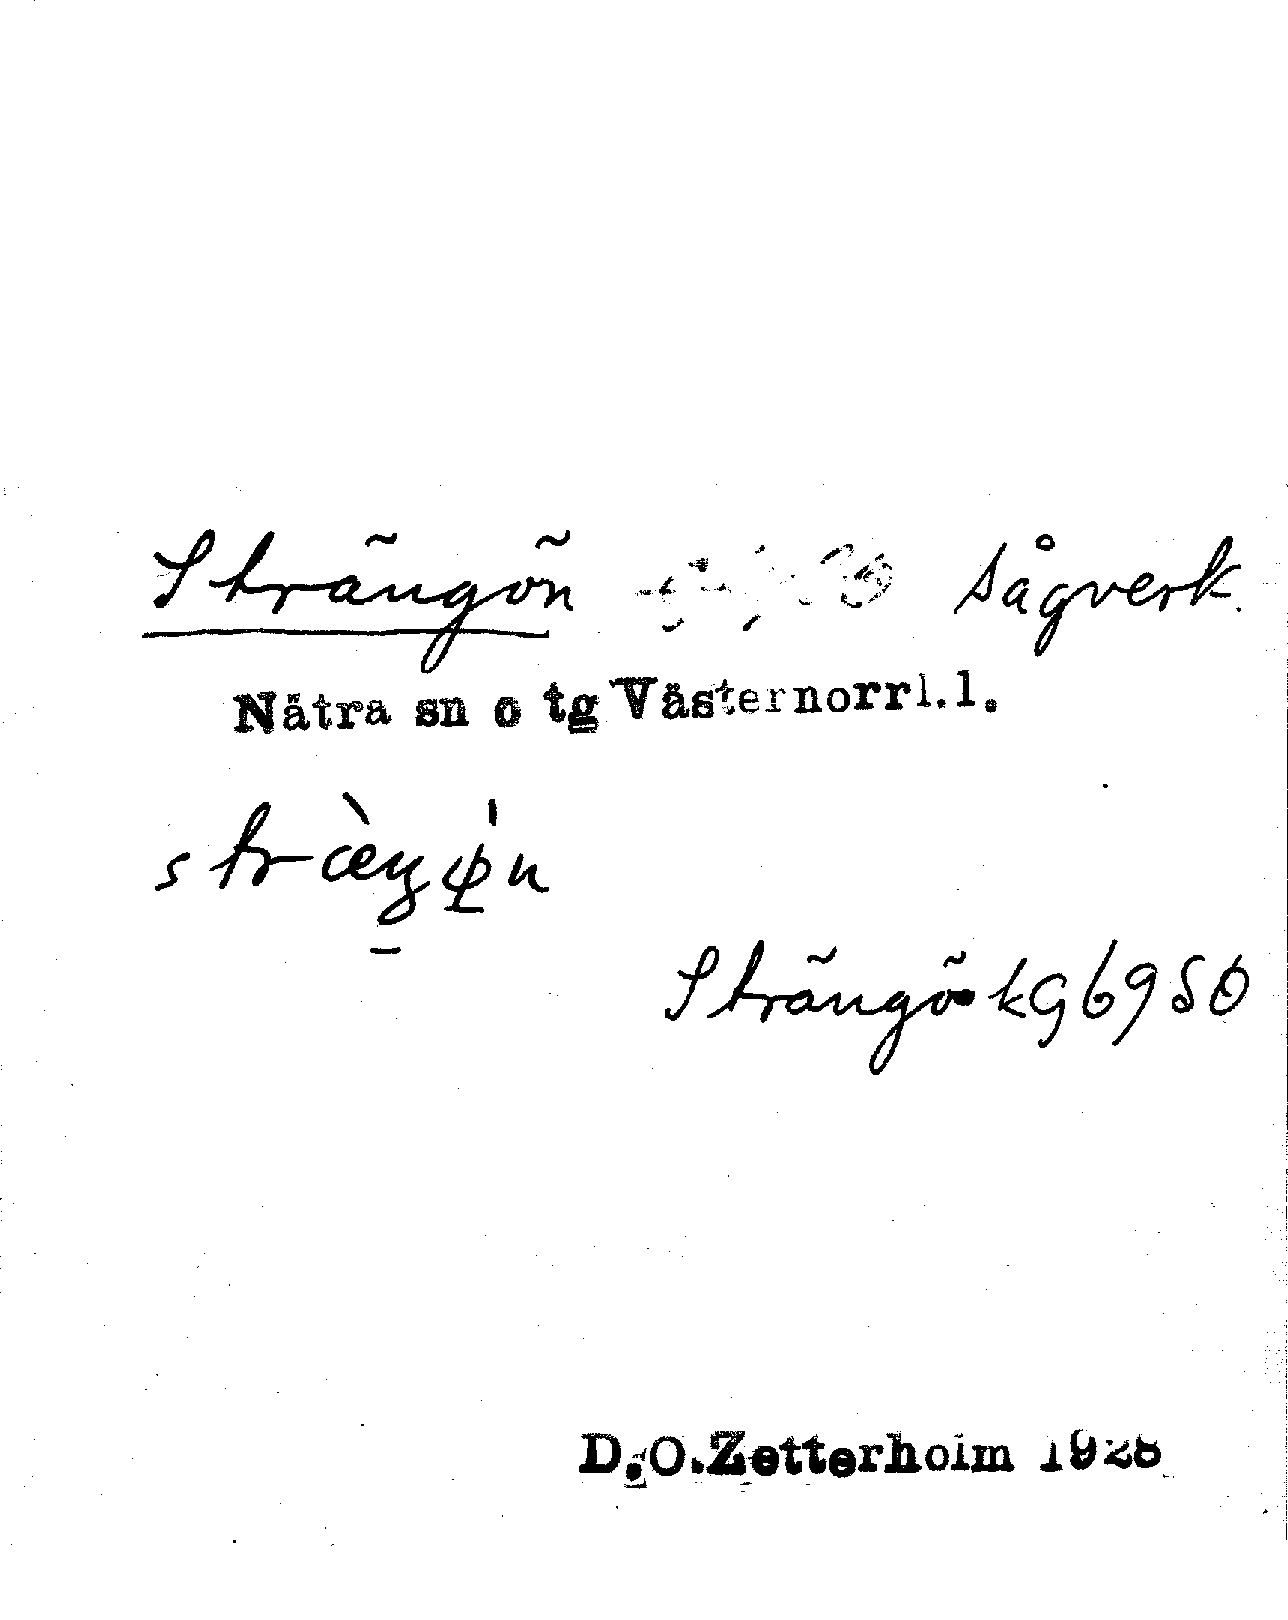 Strängön sågverk.
Nätra sn o tg Västernorrl.l.
Strängö kg 6950
D.O.Zetterholm 1928